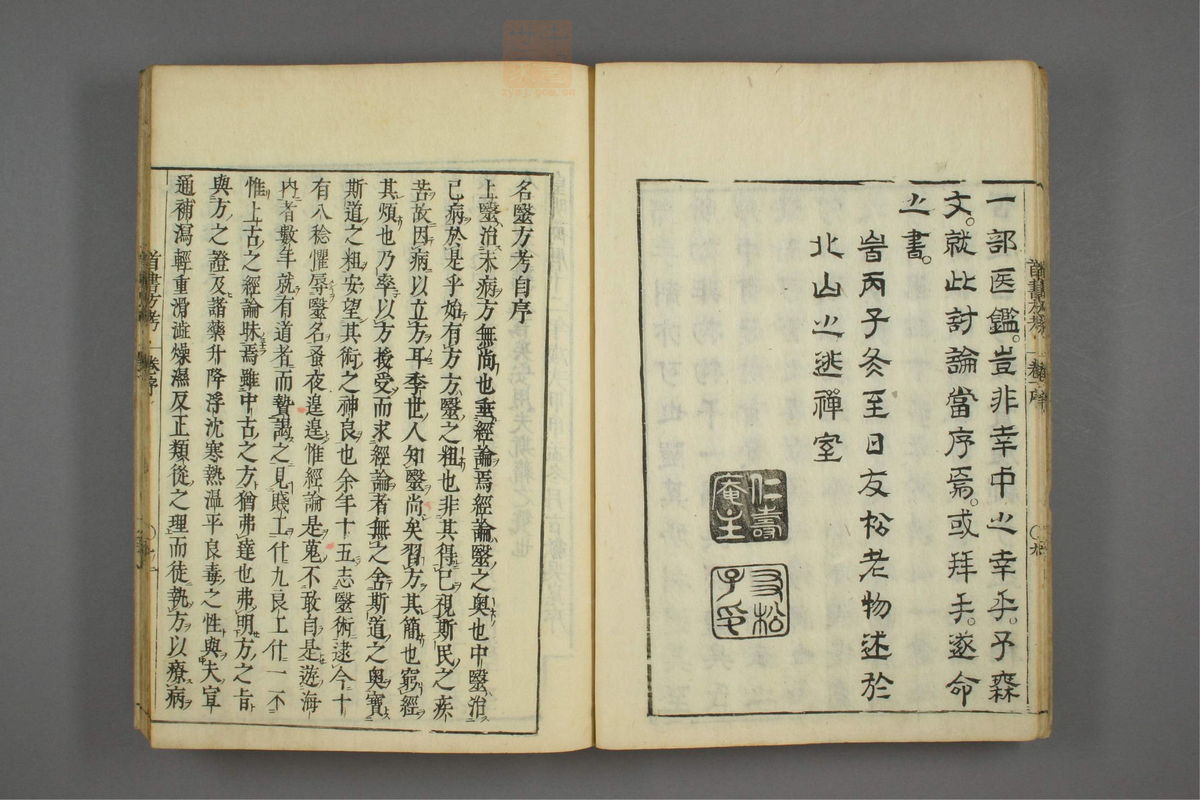 一部医鑑。豈非幸中之幸乎。予森
文。就此討論當序焉。或拜手。遂命
之書。
旹丙子冬至日友松老物述於
北山之逃禪室
仁壽
庵主
友松
子
名醫方考自序
上醫治未病方無尚也垂經論焉經論醫之奧也中醫治
已病於是乎始有方方醫之粗也非其得已視斯民之疾
苦故因病以立方耳季世人知醫尚矣習方其簡也窮經
其煩也乃率以方授受而求經論者無之舍斯道之奧寶
斯道之粗安望其術之神良也余年十五志醫術逮今十
有八稔懼辱醫名蚤夜遑遑惟經論是蒐不敢自是遊海
內者數年就有道者而贄謁之見賤工什九良工什一不
惟上古之經論昧焉雖中古之方猶弗達也弗明方之旨
與方之證及諸藥升降浮沈寒熱溫平良毒之性與夫宣
通補瀉輕重滑澁燥濕反正類從之理而徒執方以療病